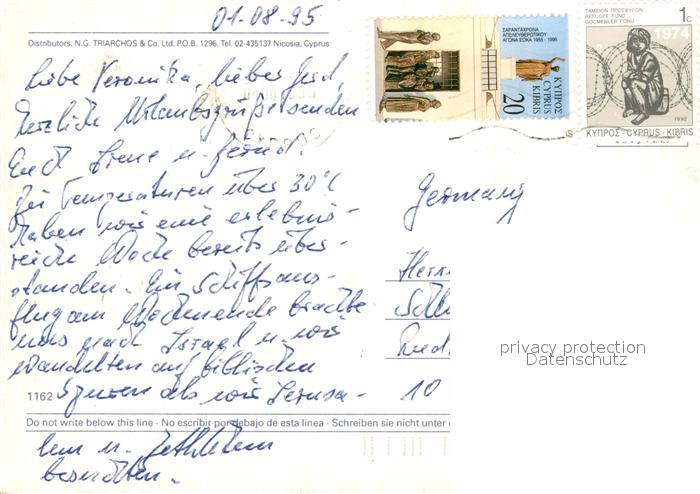 01-08-95
Distributors: N.G. TRIARCHOS & Co. Ltd. P.O.B. 1296, Tel. 02-435137 Nicosia, Cyprus
Liebe Veronika, lieber Gerd
herzliche Urlaubsgrüße senden
Euch Irene u. Bernd.
Bei Temperaturen über 30°C
haben wir eine erlebnis-
reiche Woche bereits über-
standen. Ein Schiffsaus-
flug am Wochenende brachte
uns nach Israel u. wir
wandelten auf biblischen
1162 Spuren als wir Jerusa-
Do not write below this line · No escribir por debajo de esta linea · Schreiben sie nicht unter
lem u. Bethlehem
besuchten.
ΣΑΡΑΝΤΑΧΡΟΝΑ
ΑΠΕΛΕΥΘΕΡΩΤΙΚΟΥ
ΑΓΩΝΑ ΕΟΚΑ 1955-1995
ΚΥΠΡΟΣ
CYPRUS
KIBRIS
20
ΤΑΜΕΙΟΝ ΠΡΟΣΦΥΓΩΝ
REFUGEE FUND
GÖÇMENLER FONU
1c
1974
1992
ΚΥΠΡΟΣ·CYPRUS·KIBRIS
Germany
10
privacy protection
Datenschutz